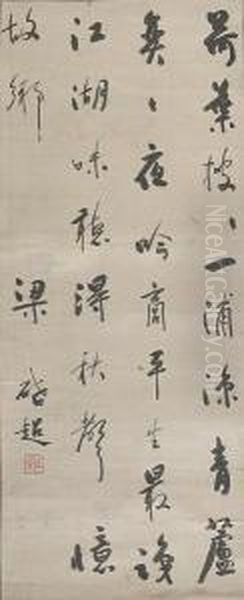 荷葉披〻一浦涼青蘆
奕〻夜吟商平生最識
江湖味聽得秋聲憶
故鄉
梁啟超